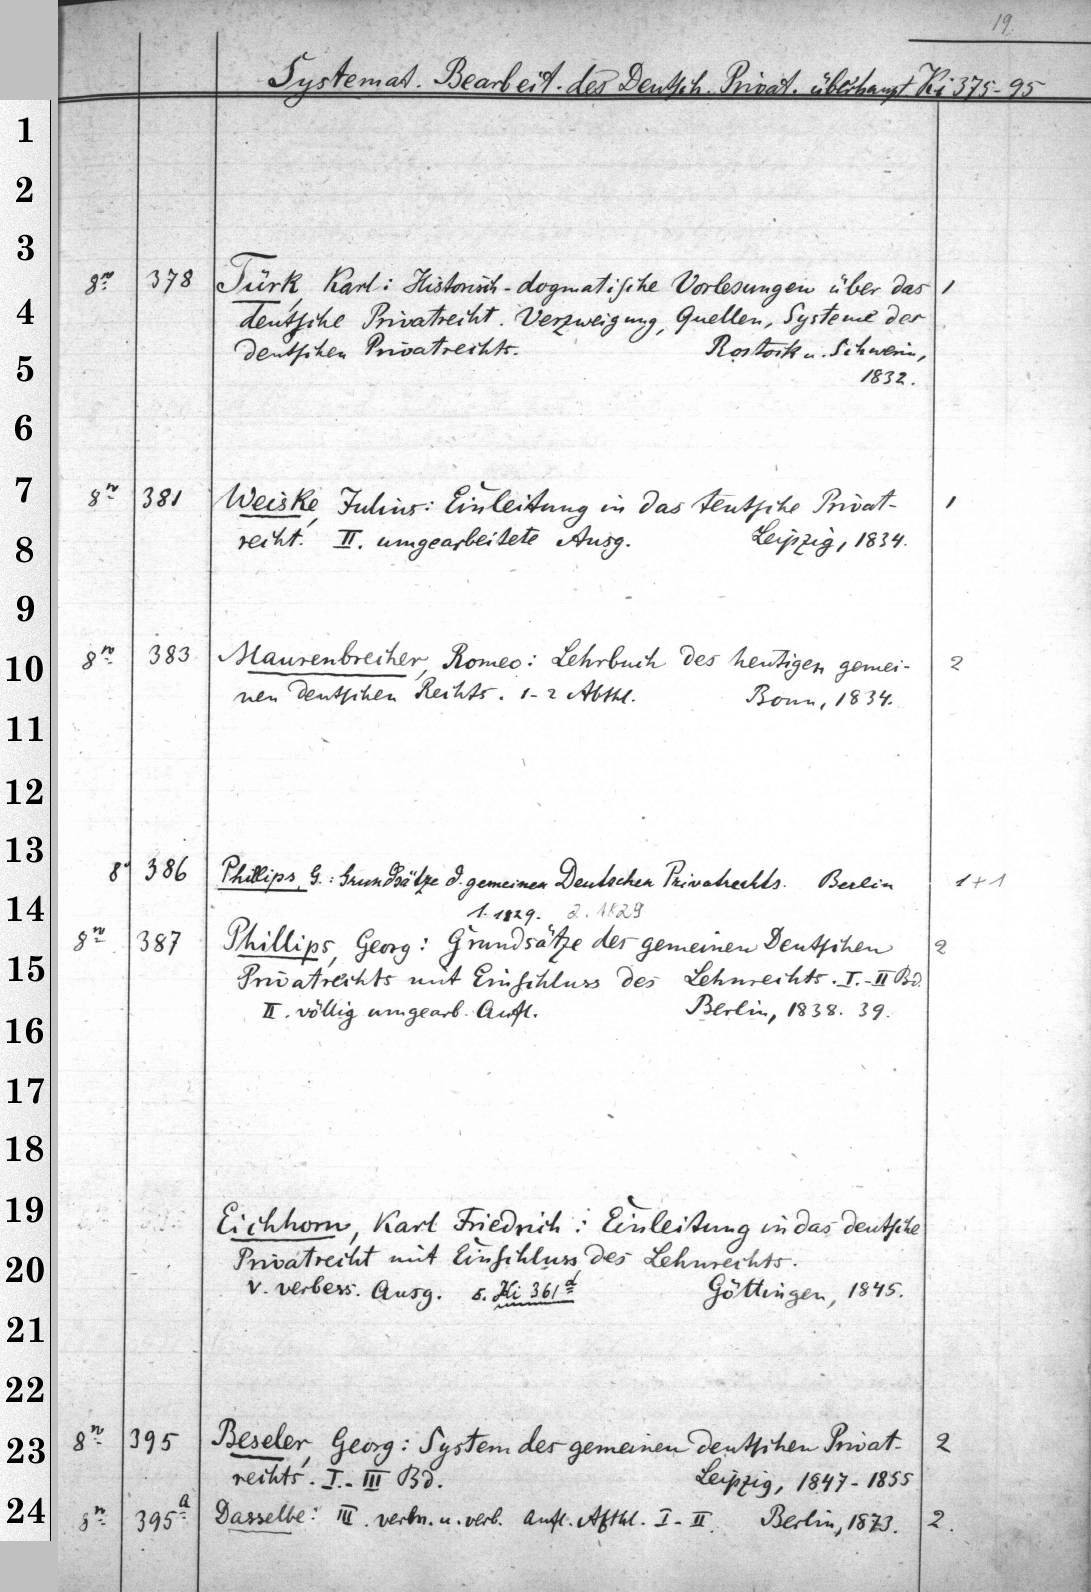 19.
Systemat. Bearbeit. des Deutsch. Privat. überhaupt Ki 375-95
1
2
3
8º 378 Türk, Karl: Historisch-dogmatische Vorlesungen über das 1
4 deutsche Privatrecht. Verzweigung, Quellen, Systeme des
5 deutschen Privatrechts. Rostock u. Schwerin,
1832.
6
7 8º 381 Weiske, Julius: Einleitung in das teutsche Privat- 1
8 recht. II. umgearbeitete Ausg. Leipzig, 1834.
9
10 8º 383 Maurenbrecher, Romeo: Lehrbuch des heutigen gemei- 2
nen deutschen Rechts. 1-2 Abthl. Bonn, 1834.
11
12
13 8º 386 Phillips, G.: Grundsätze d. gemeinen Deutschen Privatrechts. Berlin 1+1
14 1. 1829. 2. 1829
8º 387 Phillips, Georg: Grundsätze des gemeinen Deutschen 2
15 Privatrechts mit Einschluss des Lehnrechts. I.-II Bd.
16 II. völlig umgearb. Aufl. Berlin, 1838. 39.
17
18
19 Eichhorn, Karl Friedrich: Einleitung in das deutsche
20 Privatrecht mit Einschluss des Lehnrechts.
V. verbess. Ausg. s. Ki 361d Göttingen, 1845.
21
22
23 8º 395 Beseler, Georg: System des gemeinen deutschen Privat- 2
rechts. I.-III Bd. Leipzig, 1847-1855
24 8º 395a Dasselbe: III. verm. u. verb. Aufl. Abthl. I-II. Berlin, 1873. 2.